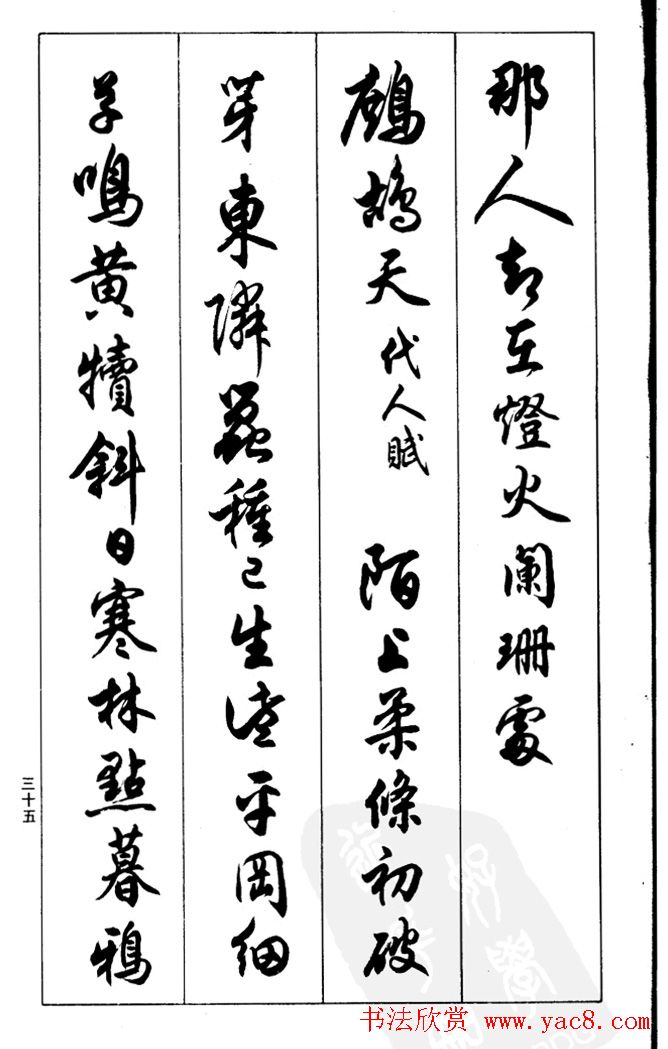 那人却在燈火闌珊處
鷓鴣天 代人賦 陌上柔條初破
芽東隣蠶種已生些平岡細
草鳴黄犢斜日寒林點暮鴉
三十五
书法欣赏 www.yac8.com